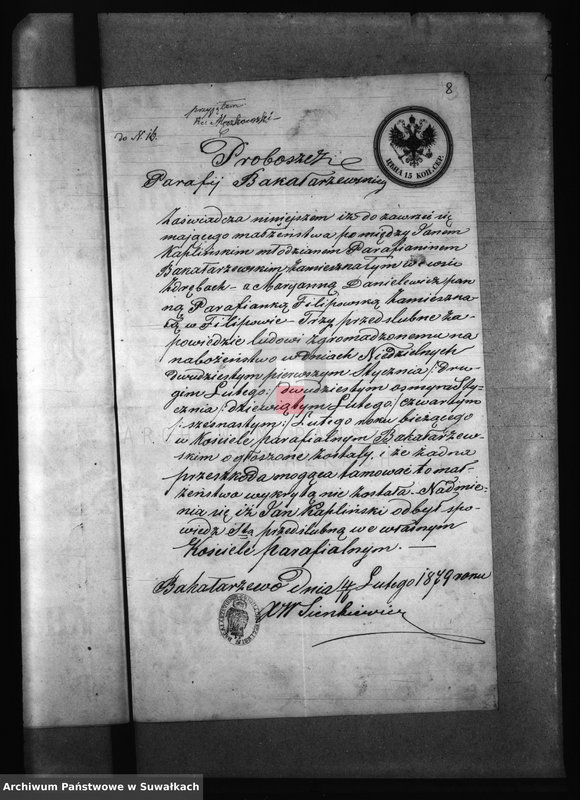 8
przyjąłem
do N 16.
Proboszcz
Parafij Bakałarzewskiej
ЦѢНА 15 КОП. СЕР.
Zaświadcza niniejszem iż do zawrzeć się
mającego małżeństwa pomiędzy Janem
Kaplińskim młodzianem Parafianinem
Bakałarzewskim zamieszkałym we wsi
Zdrębach – a Maryanną Danielewicz pan
ną Parafianką Filipowską zamieszka
łą w Filipowie – Trzy przedślubne za
powiedzie ludowi zgromadzonemu na
nabożeństwo w dniach Niedzielnych
dwudziestym pierwszym Stycznia /: dru
gim Lutego :/ dwudziestym osmym Sty
cznia /: dziewiątym Lutego :/ czwartym
/: szesnastym :/ Lutego roku bieżącego
w kościele parafialnym Bakałarzew-
skim ogłoszone zostały, i że żadna
przeszkoda mogąca tamować to mał-
żeństwo wykrytą nie została. Nadmie-
nia się iż Jan Kapliński odbył spo-
wiedź Stą przedślubną we własnym
Kościele parafialnym. —
Bakałarzewo dnia 4/16 Lutego 1879 roku
X W Sienkiewicz
Archiwum Państwowe w Suwałkach